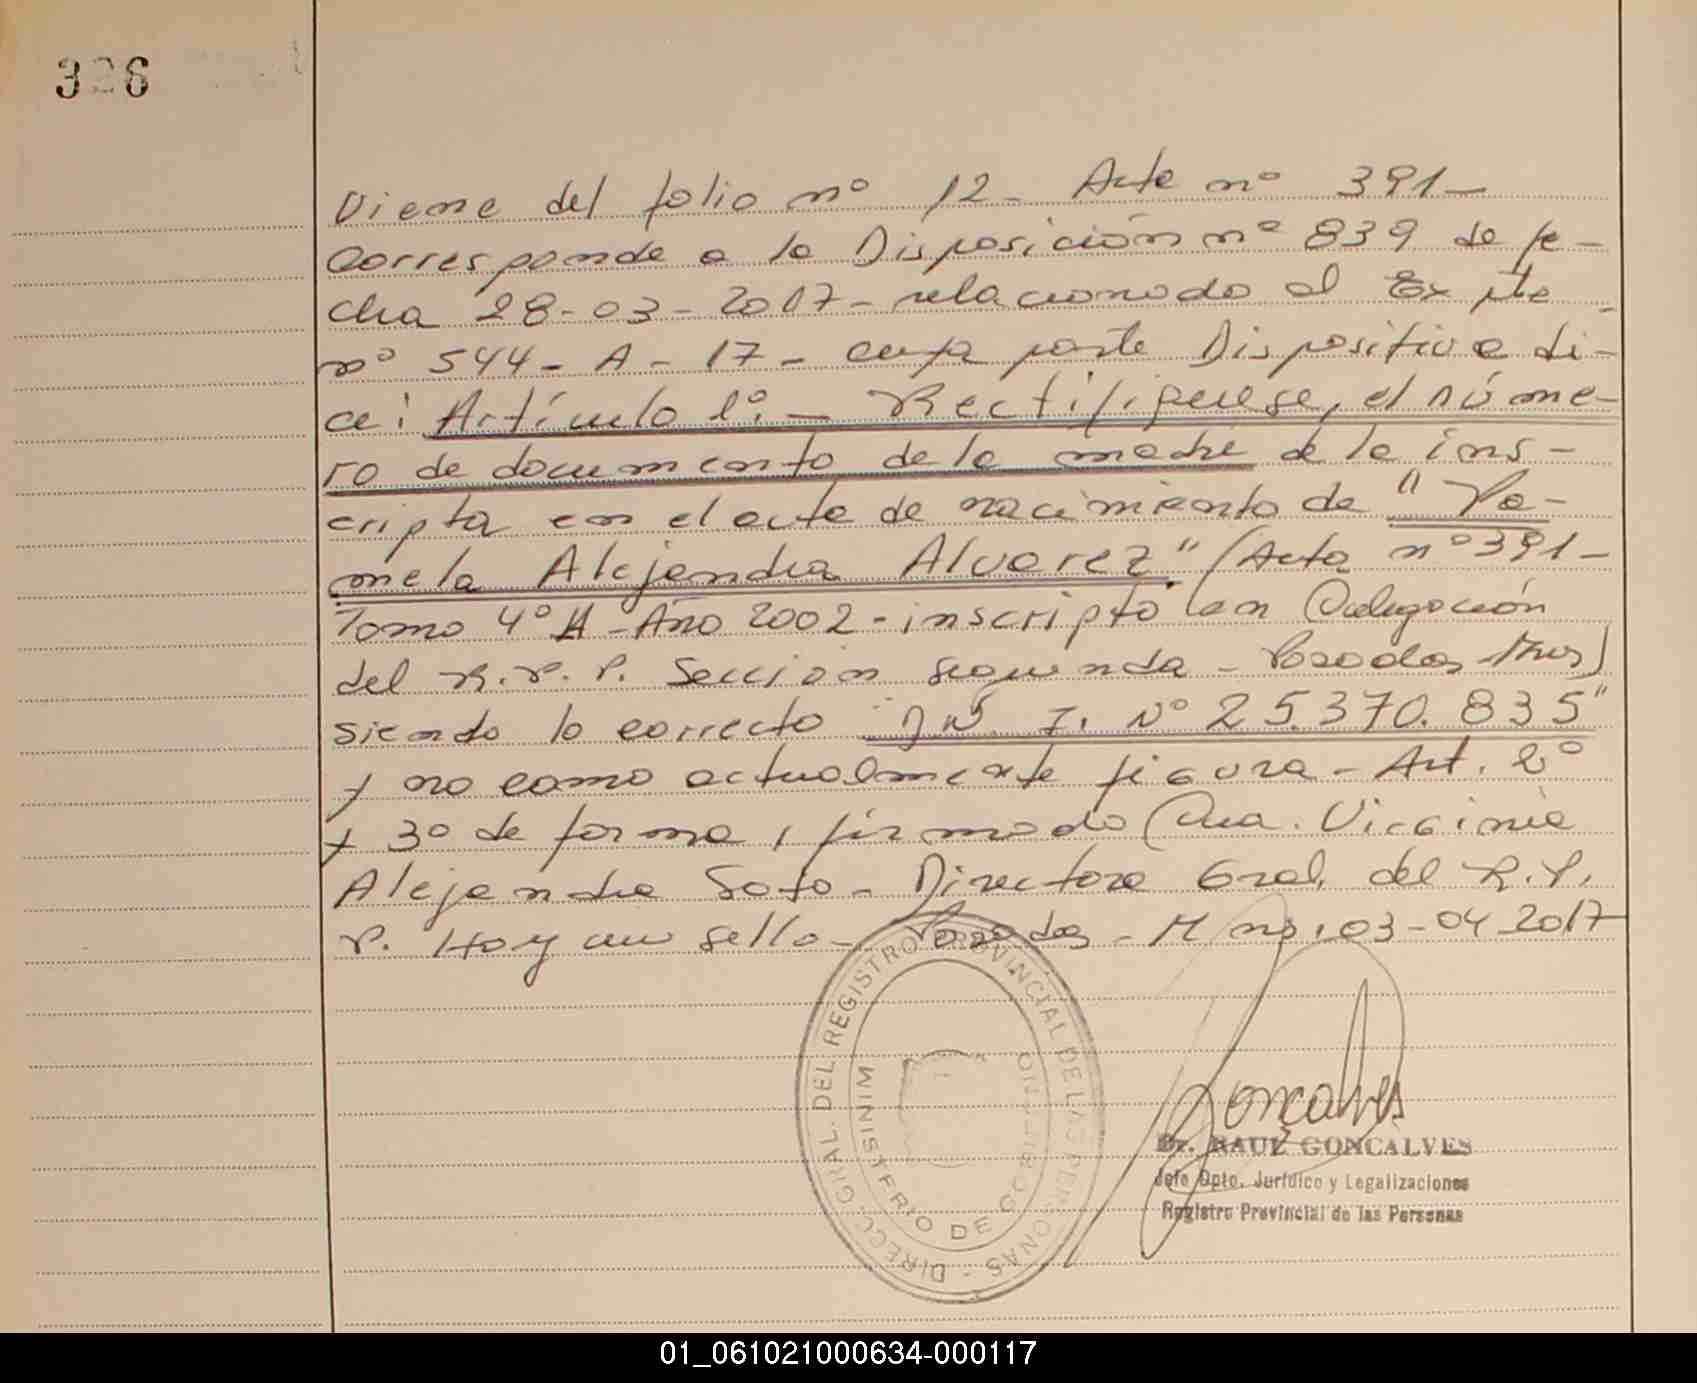 326
Viene del folio nº 12 - Acta nº 391 -
Corresponde a la Disposición nº 839 de fe-
cha 28-03-2017 - relacionado al Expte -
nº 544 - A - 17 - cuya parte Dispositiva di-
ce: Artículo 1º. - Rectifíquese, el núme-
ro de documento de la madre de la ins-
cripta en el acta de nacimiento de "Pa-
mela Alejandra Alvarez" (Acta nº 391 -
Tomo 4º A - Año 2002 - inscripto en Delegación
del R.P.P. Sección Segunda - Posadas - Mnes)
siendo lo correcto "D.N.I. Nº 25.370.835"
y no como actualmente figura - Art. 2º
y 3º de forma, firmado Dra. Virginia
Alejandra Soto - Directora Gral. del R.P.
P. Hay un sello - Posadas - Mnes, 03-04-2017
DIRECC. GRAL. DEL REGISTRO PROVINCIAL DE LAS PERSONAS -
MINISTERIO DE GOBIERNO
Goncalves
Dr. RAUL GONCALVES
Jefe Dpto. Jurídico y Legalizaciones
Registro Provincial de las Personas
01_061021000634-000117